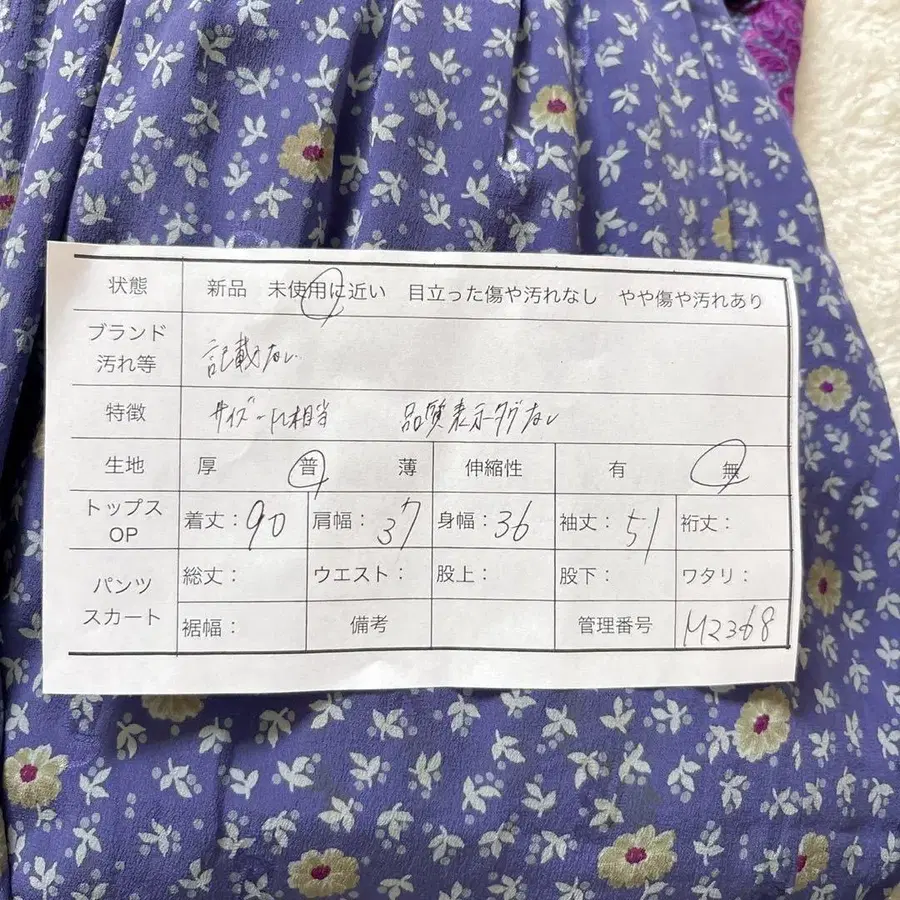 状態 新品 未使用に近い 目立った傷や汚れなし やや傷や汚れあり
ブランド
汚れ等 記載なし
特徴 サイズーM相当 品質表示タグなし
生地 厚 普 薄 伸縮性 有 無
トップス
OP 着丈：90 肩幅：37 身幅：36 袖丈：51 裄丈：
パンツ
スカート 総丈： ウエスト： 股上： 股下： ワタリ：
裾幅： 備考 管理番号 M2368